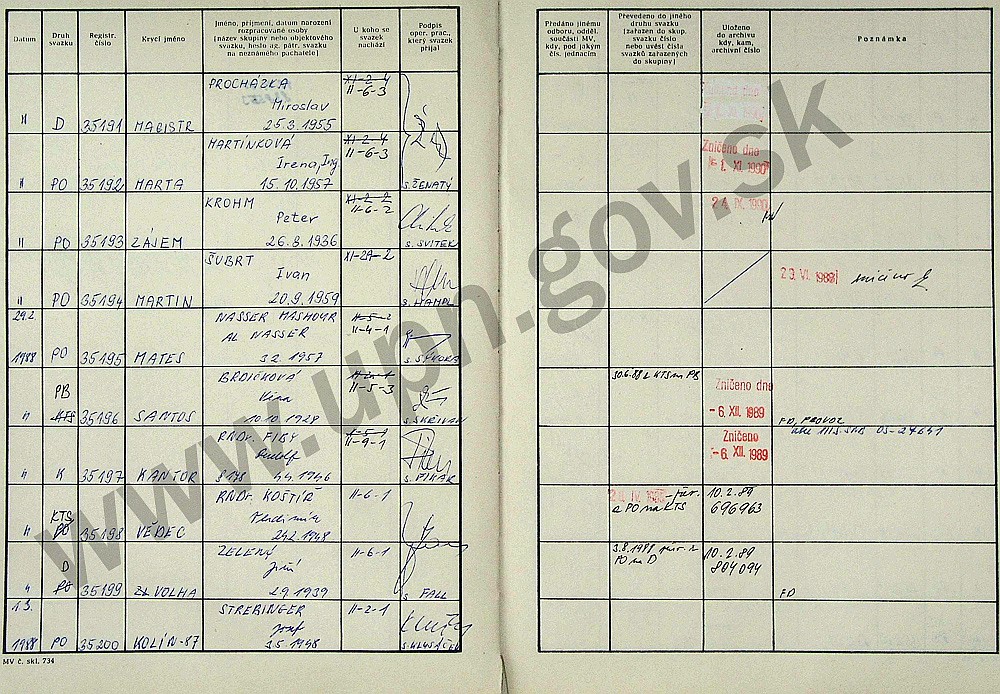 Datum
Druh
svazku
Registr.
číslo
Krycí jméno
Jméno, příjmení, datum narození
rozpracované osoby
(název skupiny nebo objektového
svazku, heslo ag. pátr. svazku
na neznámého pachatele)
U koho se
svazek
nachází
Podpis
oper. prac.,
který svazek
přijal
Předáno jinému
odboru, odděl.
součásti MV,
kdy, pod jakým
čís. jednacím
Převedeno do jiného
druhu svazku
(zařazen do skup.
svazku číslo
nebo uvést čísla
svazků zařazených
do skupiny)
Uloženo
do archivu
kdy, kam,
archivní číslo
Poznámka
PROCHÁZKA
Miroslav
25.3.1955
XI-2-4
II-6-3
" D 35191 MAGISTR
MARTÍNKOVÁ
Irena, Ing.
15.10.1957
XI-2-4
II-6-3
" PO 35192 MARTA
s. ŽENATÝ
Zničeno dne
XI. 1990
KROHM
Peter
26.8.1936
XI-2-2
II-6-2
" PO 35193 ZÁJEM
s. SVITEK
24. IX. 1990
ŠUBRT
Ivan
20.9.1959
XI-2A-2
" PO 35194 MARTIN
s. HAMPL
29. VI. 1988 zničeno
29.2.
1988 PO 35195 MATES
NASSER MASHOUR
AL NASSER
3.2.1957
II-5-2
II-4-1
s. SÝKORA
PB
KTS
" 35196 SANTOS
BRDIČKOVÁ
Věra
10.10.1929
II-5-3
s. SKŘIVAN
30.6.88 z KTS na PB
Zničeno dne
-6. XII. 1989
FD, PROVOZ
" K 35197 KANTOR
RNDr. FIBY
Rudolf
4.4.1946
II-5-1
II-9-1
Zničeno
-6. XII. 1989
KTS
PO
" 35198 VĚDEC
RNDr. KOŠTÍŘ
Vladimír
24.2.1948
II-6-1
z PO na KTS
10.2.89
696963
D
PO
" 35199 VOLHA
ZELENÝ
Jiří
2.9.1939
II-6-1
s. FALL
3.8.1988
PO na D
10.2.89
804094
FD
1.3.
1988 PO 35200 KOLÍN-87
STREBINGER
Josef
3.5.1948
II-2-1
s. HLUŠÁČEK
MV č. skl. 734
www.upn.gov.sk